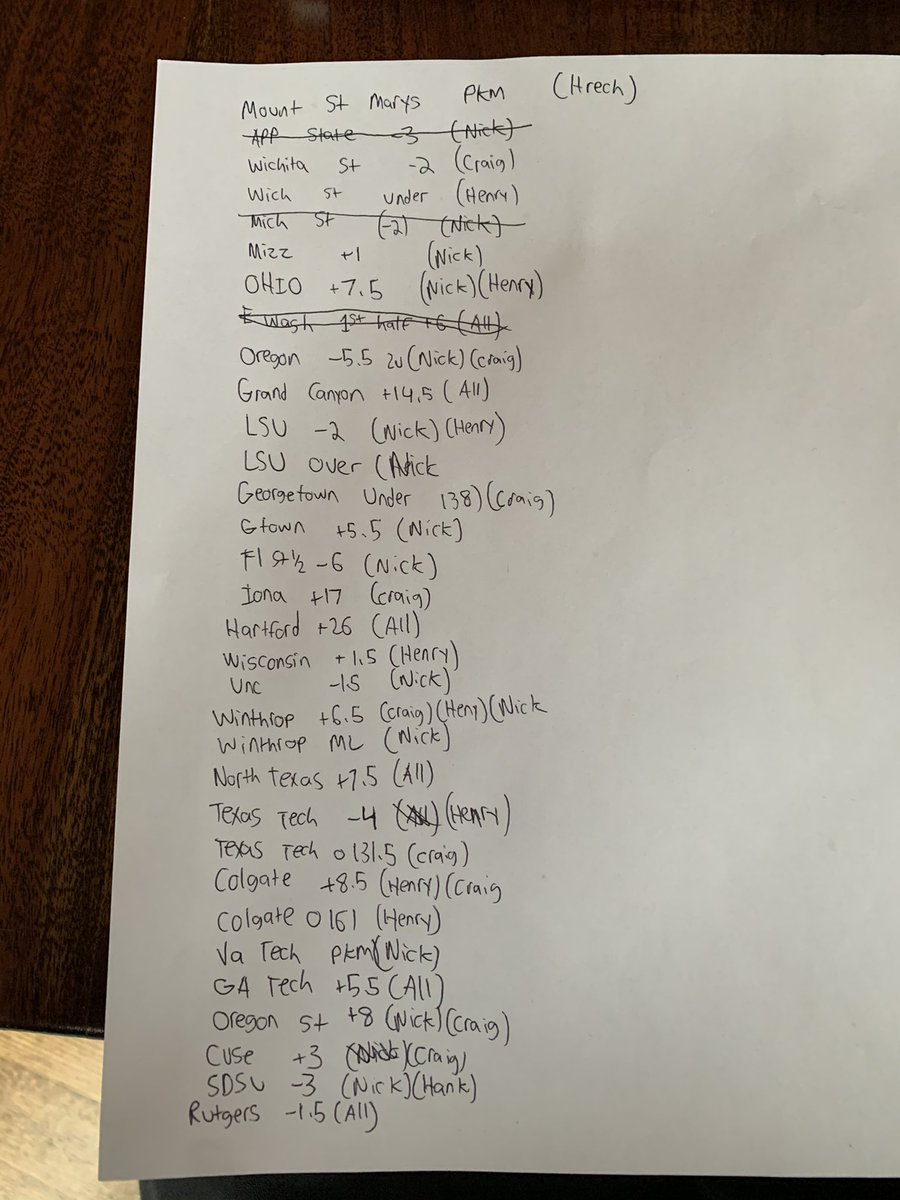 Mount St Marys PKM (Hrech)
APP State -3 (Nick)
Wichita St -2 (Craig)
Wich St under (Henry)
Mich St (-2) (Nick)
Mizz +1 (Nick)
OHIO +7.5 (Nick)(Henry)
E Wash 1st half +6 (All)
Oregon -5.5 2u (Nick)(Craig)
Grand Canyon +14.5 (All)
LSU -2 (Nick)(Henry)
LSU over (Nick
Georgetown Under 138)(Craig)
Gtown +5.5 (Nick)
Fl St 1/2 -6 (Nick)
Iona +17 (craig)
Hartford +26 (All)
Wisconsin +1.5 (Henry)
Unc -1.5 (Nick)
Winthrop +6.5 (Craig)(Henry)(Nick
Winthrop ML (Nick)
North Texas +7.5 (All)
Texas Tech -4 (Henry)
Texas Tech O 131.5 (craig)
Colgate +8.5 (Henry)(Craig
Colgate O 161 (Henry)
Va Tech PKM (Nick)
GA Tech +5.5 (All)
Oregon St +8 (Nick)(Craig)
Cuse +3 (Craig)
SDSU -3 (Nick)(Hank)
Rutgers -1.5 (All)